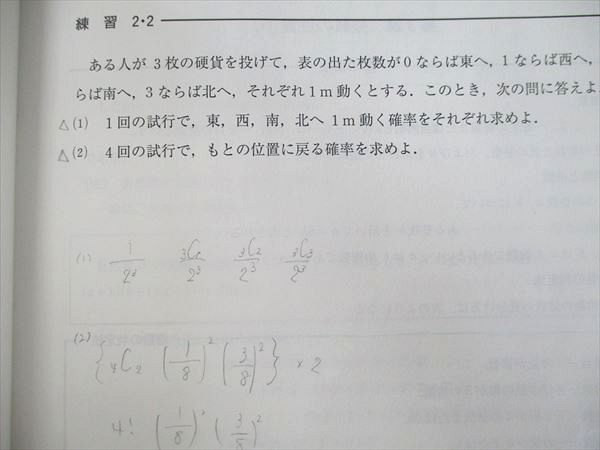 練習 2・2
ある人が 3 枚の硬貨を投げて，表の出た枚数が 0 ならば東へ，1 ならば西へ，
らば南へ，3 ならば北へ，それぞれ 1 m 動くとする．このとき，次の問に答えよ．
△(1) 1 回の試行で，東，西，南，北へ 1 m 動く確率をそれぞれ求めよ．
△(2) 4 回の試行で，もとの位置に戻る確率を求めよ．
(1) 1/2³ ₃C₁/2³ ₃C₂/2³ ₃C₃/2³
(2)
{₄C₂ (1/8)² (3/8)²} × 2
4! (1/8)² (3/8)²